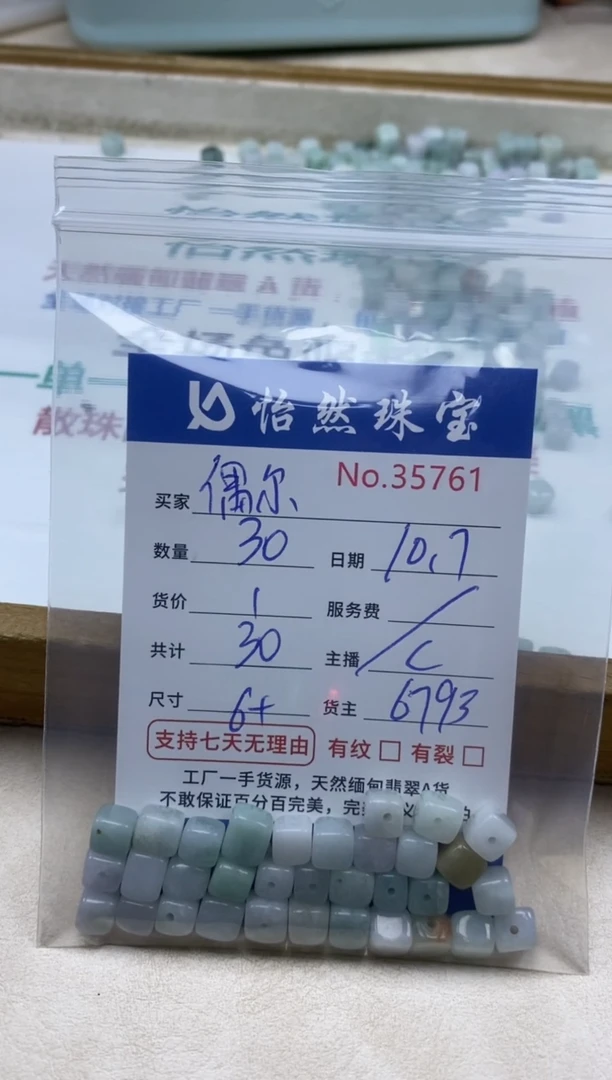 天然缅甸翡翠A货
工厂一手货源
单
散珠
怡然珠宝
No.35761
买家 偶尔
数量 30 日期 10.7
货价 1 服务费 /
共计 30 主播 C
尺寸 6+ 货主 6793
支持七天无理由 有纹 有裂
工厂一手货源，天然缅甸翡翠A货
不敢保证百分百完美，完